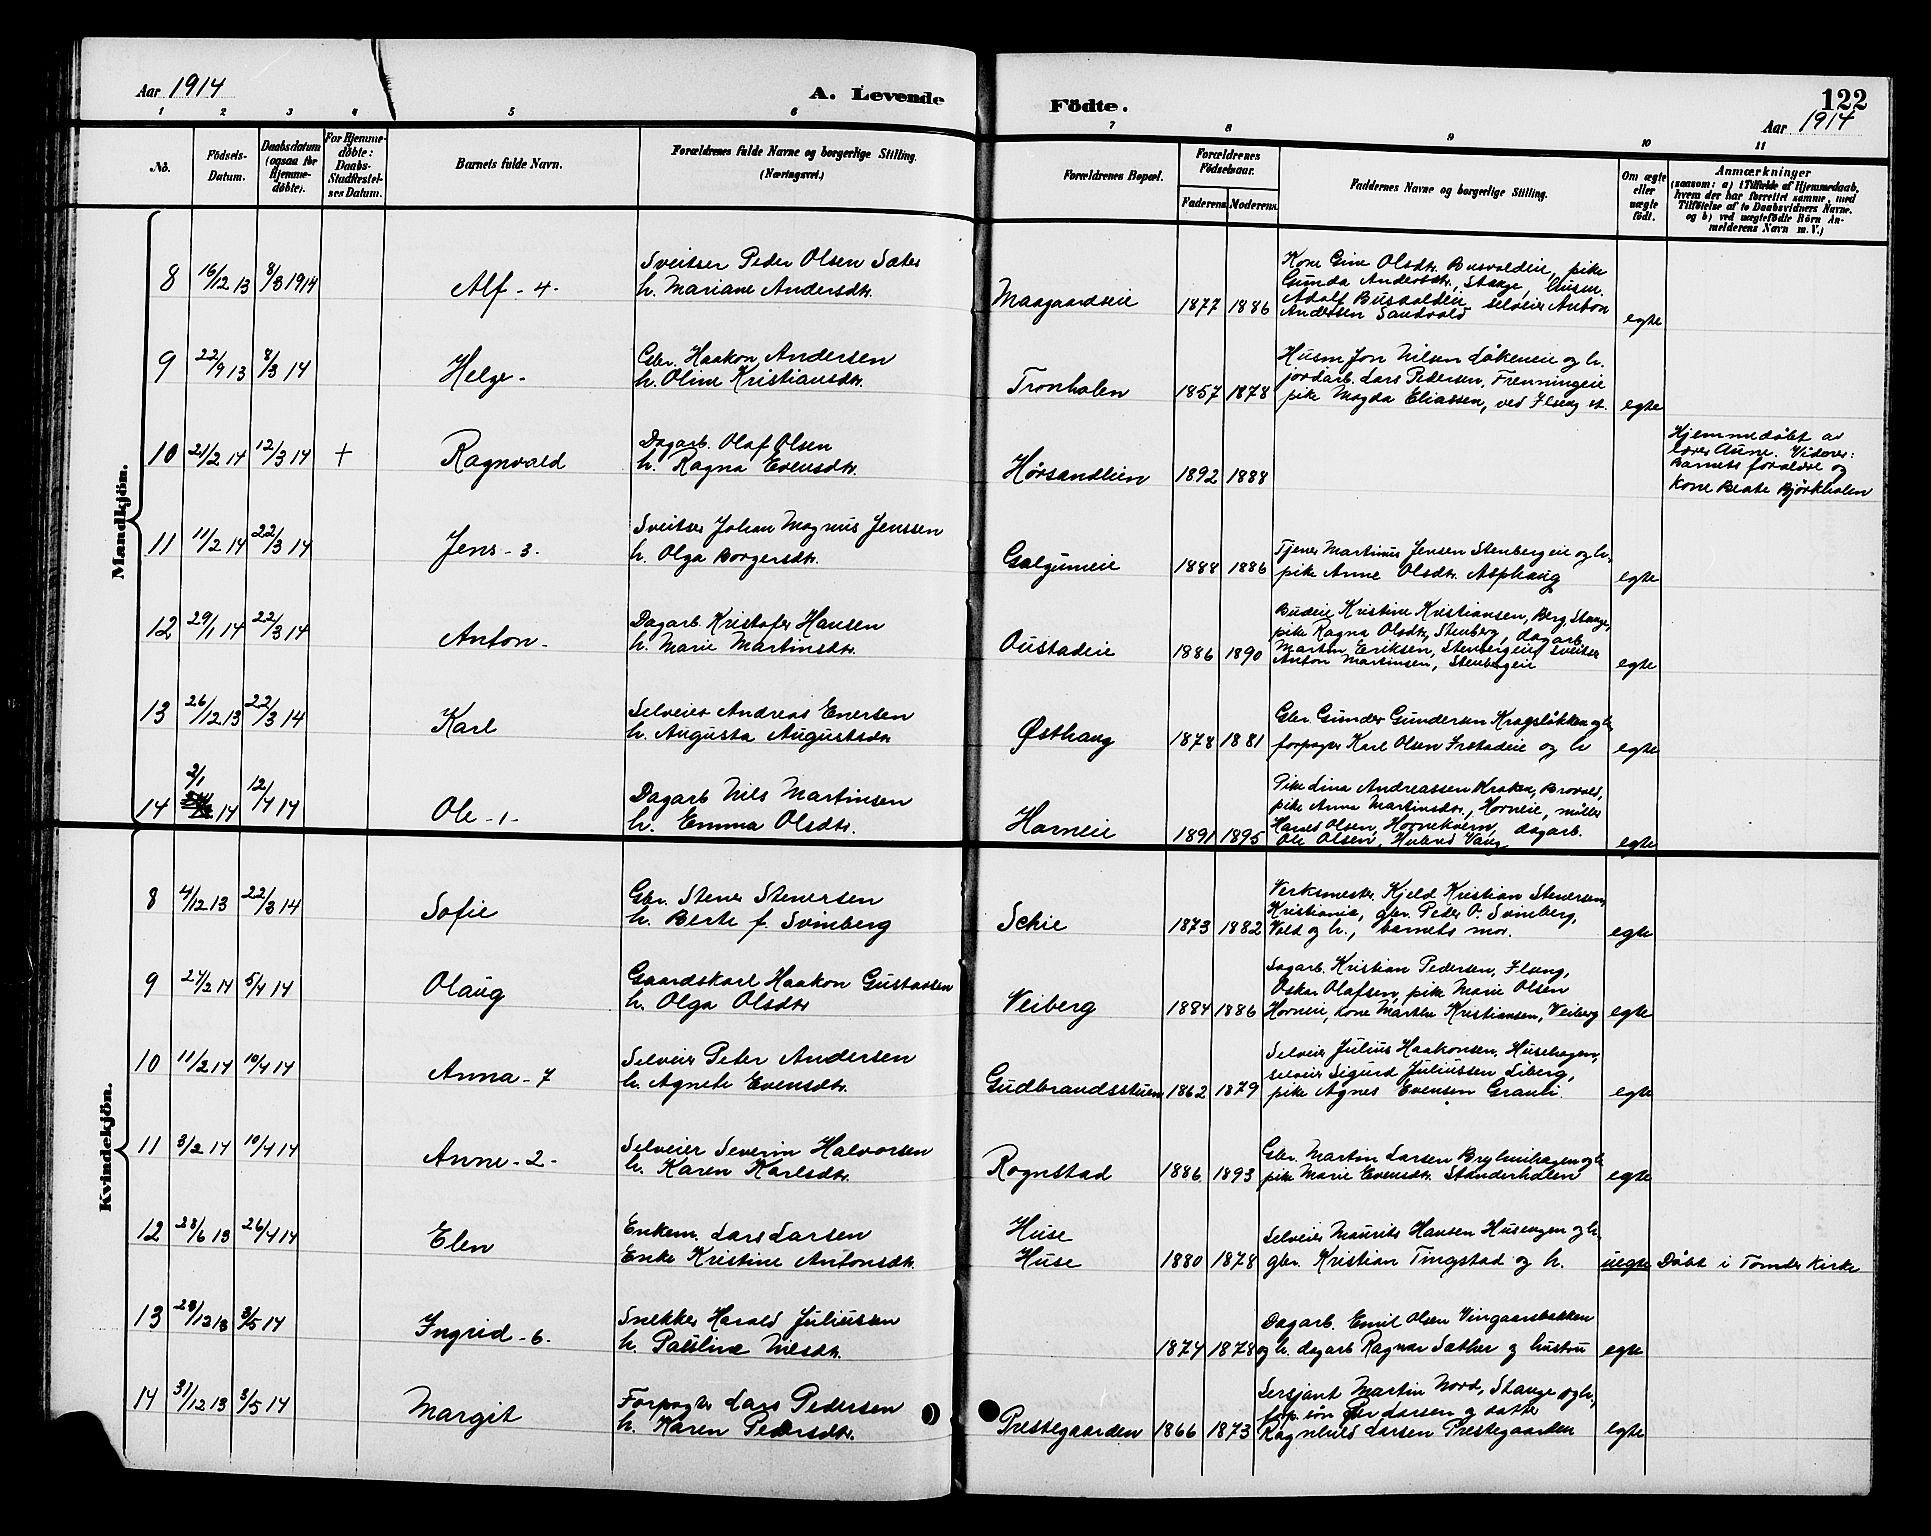 Aar 1914
A. Levende
Födte.
122
Aar 1914
1 2 3 4 5 6 7 8 9 10 11
No.
Födsels-
Datum.
Daabsdatum
(ogsaa for
Hjemme-
døbte).
For Hjemme-
døbte:
Daabs-
Stadfæstel-
ses Datum.
Barnets fulde Navn.
Forældrenes fulde Navne og borgerlige Stilling.
(Næringsvei.)
Forældrenes Bopæl.
Forældrenes
Födselsaar.
Faderens. Moderens.
Faddernes Navne og borgerlige Stilling.
Om ægte
eller
uægte
født.
Anmærkninger
(saasom: a) i Tilfælde af Hjemmedaab,
hvem der har forrettet samme, med
Tilføielse af to Daabsvidners Navne,
og b) ved uægtefødte Börn An-
melderens Navn m.V.)
Mandkjön.
8 16/12 13 8/3 1914 Alf - 4 -
Sveitser Peder Olsen Sæter
h. Mariane Andersdtr.
Maagaardeie 1877 1886
Kone Gine Olsdtr. Busvoldeie, pike
Gunda Andersdtr., Stange, husm.
Adolf Busvoldeie, selveier Anton
Andersen Sandvold
egte
9 22/9 13 8/3 14 Helge -
Gbr. Haakon Andersen
h. Oline Kristiansdtr.
Tronholen 1857 1878
Husm. Jon Nilsen Løkeneie og h.
jordarb. Lars Pedersen, Frenningeie
pike Magda Eliassen, ved Ilseng st.
egte
10 21/2 14 12/3 14 + Ragnvald
Dagarb. Olaf Olsen
h. Ragna Evensdtr.
Hørsandlien 1892 1888
Hjemmedøbt av
lærer Aune. Vidner:
Barnets forældre og
kone Beate Bjørkholen
11 11/2 14 22/3 14 Jens - 3 -
Sveitser Johan Magnus Jenssen
h. Olga Borgersdtr.
Galgumeie 1888 1886
Tjener Martinus Jensen Stenbergeie og h.,
pike Anne Olsdtr. Asphaug
egte
12 29/1 14 22/3 14 Anton -
Dagarb. Kristofer Hansen
h. Marie Martinsdtr.
Oustadeie 1886 1890
Budeie Kristine Kristiansen, Berg, Stange,
pike Ragna Olsdtr., Stenberg, dagarb.
Martin Eriksen, Stenbergeie, sveitser
Anton Martinsen, Stenbergeie
egte
13 26/12 13 22/3 14 Karl
Selveier Andreas Enersen
h. Augusta Augustsdtr.
Østhaug 1878 1881
Gbr. Gunder Gundersen Kragsløkken og h.
forpagter Karl Olsen Frstadeie og h
egte
14 2/1 14 12/4 14 Ole - 1 -
Dagarb Nils Martinsen
h. Emma Olsdtr.
Horneie 1891 1895
Pike Lina Andreassen Kraken, Brovold,
pike Anna Martinsdtr., Horneie, møller
Harald Olsen, Hornekvern, dagarb.
Ole Olsen, Vang
egte
Kvindekjön.
8 4/12 13 22/3 14 Sofie
Gbr. Stener Stenersen
h. Berte f. Svinberg
Schie 1873 1882
Verksmester Kjeld Kristian Stenersen,
Kristiania, gbr. Peder O. Svinberg,
Vold og h., barnets mor.
egte
9 27/2 14 5/4 14 Olaug
Gaardskarl Haakon Gustavsen
h. Olga Olsdtr
Veiberg 1884 1886
Sagarb. Kristian Pedersen, Ilseng,
Oskar Olafsen, pike Marie Olsen
Horneie, kone Marthe Kristiansen, Veiberg
egte
10 11/2 14 10/4 14 Anna - 7
Selveier Peter Andersen
h. Agnete Evensdtr.
Gudbrandsstuen 1862 1879
Selveier Julius Haakonsen, Husehagen,
selveier Sigurd Juliussen Liberg,
pike Agnes Evensen Granli
egte
11 3/2 14 10/4 14 Anne - 2 -
Selveier Severin Halvorsen
h. Karen Karlsdtr.
Rognstad 1886 1893
Gbr. Martin Larsen Brylinhagen og h
pike Marie Evensdtr. Standerholen
egte
12 23/6 13 26/4 14 Elen
Enkem. Lars Larsen
Enke Kristine Antonsdtr.
Huse
Huse 1880 1878
Selveier Maurits Hansen Husengen og h.
gbr. Kristian Tingstad og h.
uegte Døbt i Tomter Kirke
13 28/12 13 3/5 14 Ingrid - 6 -
Snekker Harald Juliussen
h. Pauline Nilsdtr.
1874 1878
Dagarb. Emil Olsen Vingaarsbakken
og h. dagarb Ragnar Sæther og hustru
egte
14 31/12 13 3/5 14 Margit
Forpagter Lars Pedersen
h. Karen Pedersdtr.
Prestegaarden 1866 1873
Sersjant Martin Nord, Stange og h.,
forp. søn Per Larsen og datter
Ragnhild Larsen Prestegaarden
egte